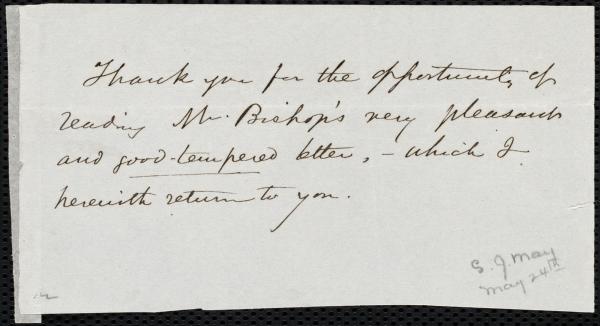 Thank you for the opportunity of
reading Mr. Bishop's very pleasant
and good-tempered letter, – which I
herewith return to you.
S. J. May
May 24th